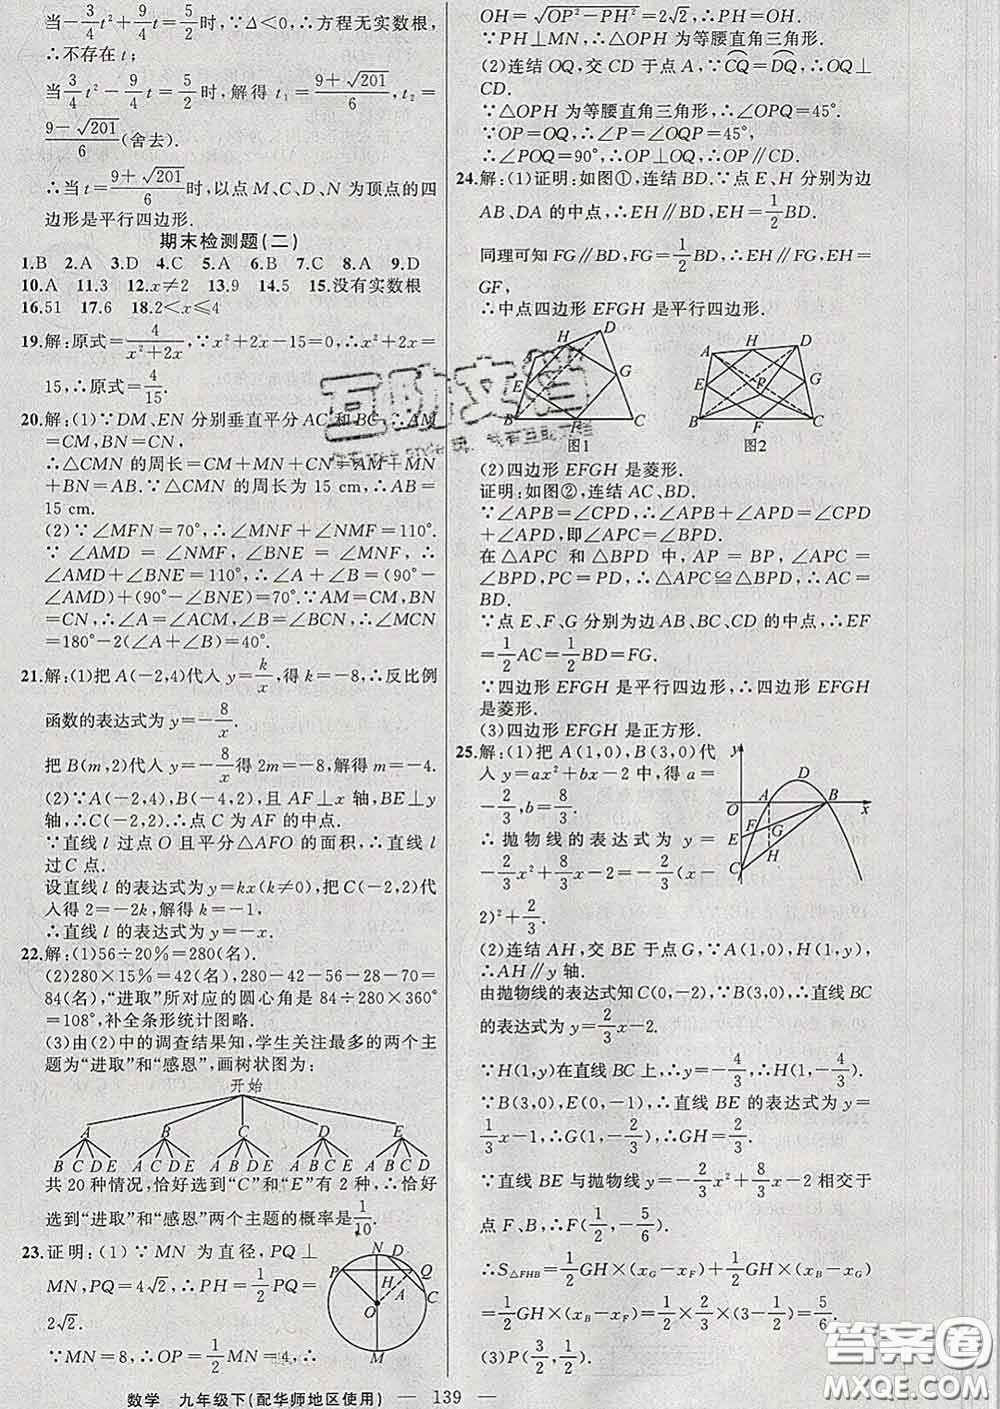 当-3/4t²+9/4t=5/2时,∵Δ<0,∴方程无实数根,
∴不存在t;
当3/4t²-9/4t=5/2时,解得t₁=(9+√201)/6,t₂=
(9-√201)/6(舍去).
∴当t=(9+√201)/6时,以点M、C、D、N为顶点的四
边形是平行四边形.
期末检测题(二)
1.B 2.A 3.D 4.C 5.A 6.B 7.C 8.A 9.D
10.A 11.3 12.x≠2 13.9 14.5 15.没有实数根
16.51 17.6 18.2<x≤4
19.解:原式=4/(x²+2x),∵x²+2x-15=0,∴x²+2x=
15,∴原式=4/15.
20.解:(1)∵DM、EN分别垂直平分AC和BC,∴AM
=CM,BN=CN,
∴△CMN的周长=CM+MN+CN=AM+MN
+BN=AB.∵△CMN的周长为15 cm,∴AB=
15 cm.
(2)∵∠MFN=70°,∴∠MNF+∠NMF=110°.
∵∠AMD=∠NMF,∠BNE=∠MNF,∴
∠AMD+∠BNE=110°,∴∠A+∠B=(90°-
∠AMD)+(90°-∠BNE)=70°.∵AM=CM,BN
=CN,∴∠A=∠ACM,∠B=∠BCN,∴∠MCN
=180°-2(∠A+∠B)=40°.
21.解:(1)把A(-2,4)代入y=k/x,得k=-8,∴反比例
函数的表达式为y=-8/x.
把B(m,2)代入y=-8/x得2m=-8,解得m=-4.
(2)∵A(-2,4),B(-4,2),且AF⊥x轴,BE⊥y
轴,∴C(-2,2).∴点C为AF的中点.
∵直线l过点O且平分△AFO的面积,∴直线l
过C点.
设直线l的表达式为y=kx(k≠0),把C(-2,2)代
入得2=-2k,解得k=-1,
∴直线l的表达式为y=-x.
22.解:(1)56÷20%=280(名).
(2)280×15%=42(名),280-42-56-28-70=
84(名),“进取”所对应的圆心角是84÷280×360°
=108°,补全条形统计图略.
(3)由(2)中的调查结果知,学生关注最多的两个主
题为“进取”和“感恩”,画树状图为:
开始
A B C D E
B C D E A C D E A B D E A B C E A B C D
共20种情况,恰好选到“C”和“E”有2种,∴恰好
选到“进取”和“感恩”两个主题的概率是1/10.
23.证明:(1)∵MN为直径,PQ⊥
MN,PQ=4√2,∴PH=1/2PQ=
2√2.
∵MN=8,∴OP=1/2MN=4,∴
N D P H Q A C O M
数学 九年级下(配华师地区使用) — 139 —
OH=√(OP²-PH²)=2√2,∴PH=OH.
∵PH⊥MN,∴△OPH为等腰直角三角形.
(2)连结OQ,交CD于点A,∵CQ=DQ,∴OQ⊥
CD.
∵△OPH为等腰直角三角形,∴∠OPQ=45°.
∵OP=OQ,∴∠P=∠OQP=45°,
∴∠POQ=90°,∴OP⊥OQ,∴OP∥CD.
24.解:(1)证明:如图①,连结BD.∵点E、H分别为边
AB、DA的中点,∴EH∥BD,EH=1/2BD.
同理可知FG∥BD,FG=1/2BD,∴EH∥FG,EH=
GF,
∴中点四边形EFGH是平行四边形.
A H D E G B F C
图1
A H D E P G B F C
图2
(2)四边形EFGH是菱形.
证明:如图②,连结AC、BD.
∵∠APB=∠CPD,∴∠APB+∠APD=∠CPD
+∠APD,即∠APC=∠BPD.
在△APC和△BPD中,AP=BP,∠APC=
∠BPD,PC=PD,∴△APC≌△BPD,∴AC=
BD.
∵点E、F、G分别为边AB、BC、CD的中点,∴EF
=1/2AC=1/2BD=FG.
∵四边形EFGH是平行四边形,∴四边形EFGH
是菱形.
(3)四边形EFGH是正方形.
25.解:(1)把A(1,0),B(3,0)代
入y=ax²+bx-2中,得a=
-2/3,b=8/3.
∴抛物线的表达式为y=
-2/3x²+8/3x-2=-2/3(x-
2)²+2/3.
y D O A B x F E G H C
(2)连结AH,交BE于点G,∵A(1,0),H(1,y),
∴AH∥y轴.
由抛物线的表达式知C(0,-2),∵B(3,0),∴直线BC
的表达式为y=2/3x-2.
∵H(1,y)在直线BC上,∴y=-4/3,∴H(1,-4/3).
∵B(3,0),E(0,-1),∴直线BE的表达式为y=
1/3x-1,∴G(1,-2/3),∴GH=2/3.
∵直线BE与抛物线y=-2/3x²+8/3x-2相交于
点F、B,∴F(1/2,-5/6).
∴S△FHB=1/2GH×(x_G-x_F)+1/2GH×(x_B-x_G)
=1/2GH×(x_B-x_F)=1/2×2/3×(3-1/2)=5/6.
(3)P(1/2,1/2).
互助文档
答案圈
MXQE.COM